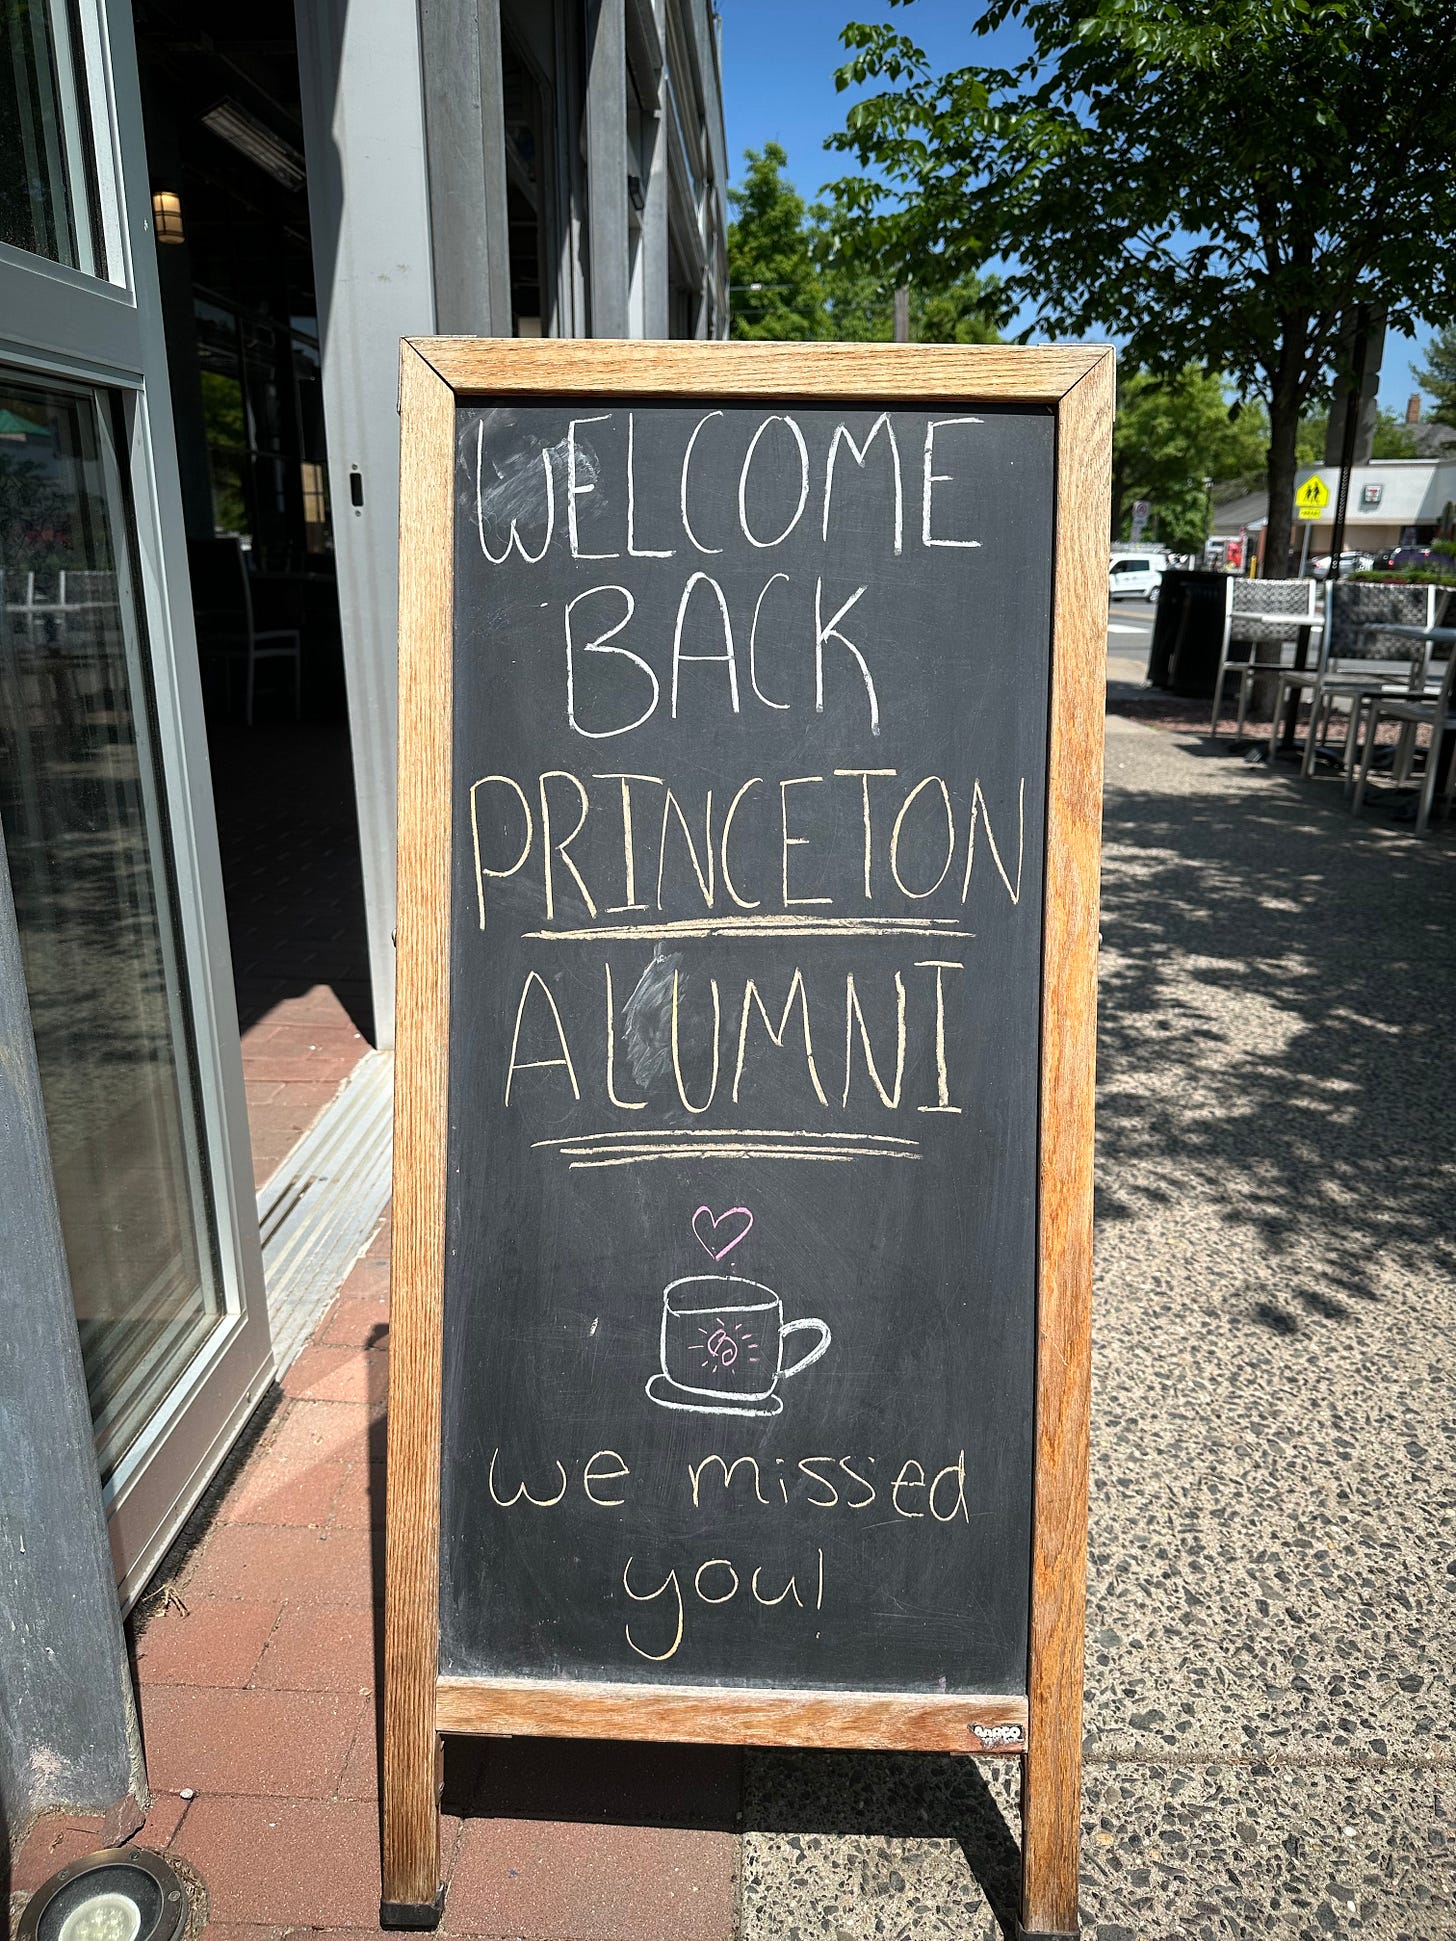 WELCOME
BACK
PRINCETON
ALUMNI
we missed
you!
AARCO